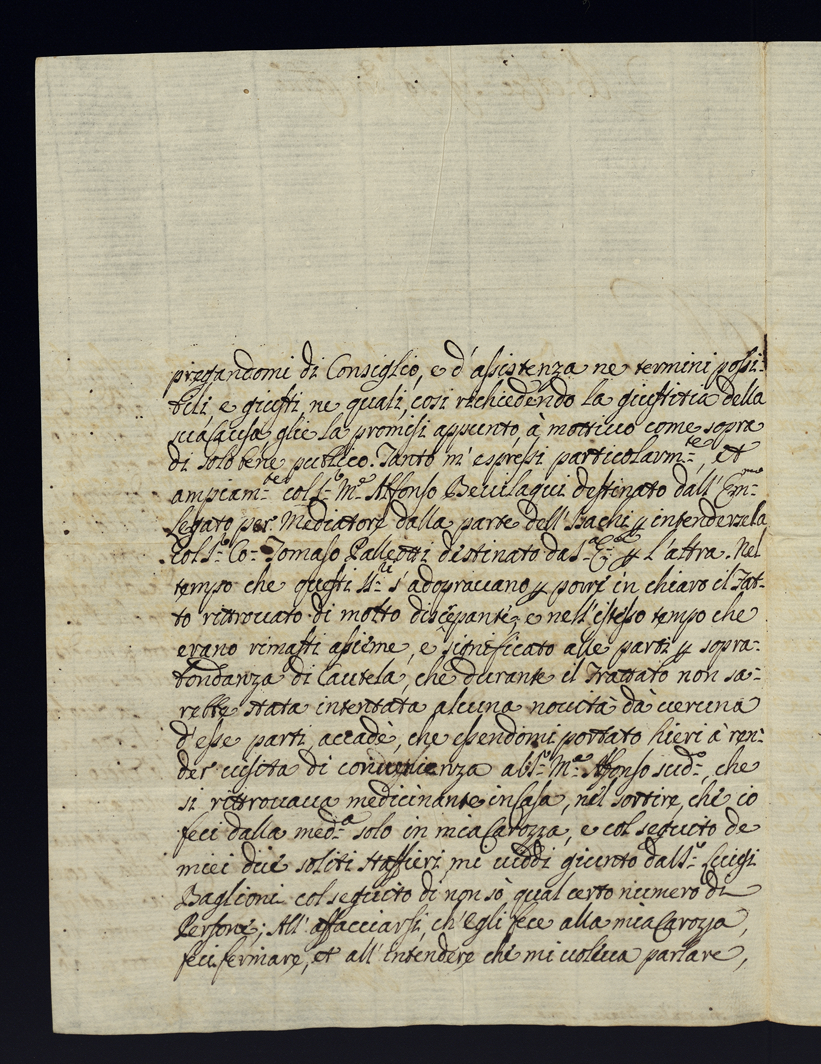 pregandomi di Consiglio, e d'assistenza ne termini possi-
bili, e giusti, ne quali, così richiedendo la giustitia della
sua causa glie la promisi appunto, à mottivo come sopra
di solo bene publico. Tanto m'espressi particolarm:te, et
ampiam:te col S:r M:e Alfonso Bevilaqui destinato dall' Em:mo
Legato per Mediatore dalla parte dell' Bachi p intendersela
col S:r Co: Tomaso Palleotti distinato da S:a E:a p l'altra. Nel
tempo che questi SS:ri s'adopravano p porre in chiaro il Fat-
to ritrovato di molto discepante, e nell'istesso tempo che
erano rimasti assieme, e significato alle parti p sopra-
bondanza di Cautela, che durante il Trattato non sa-
rebbe stata intentata alcuna novità dà veruna
d'esse parti, accadè, che essendomi portato hieri à ren-
der visita di convenienza al S:r M:e Alfonso sud:o, che
si ritrovava medicinante in Casa, nel sortire, che io
feci dalla med:a solo in mia Carozza, e col seguito de
miei due soliti staffieri mi viddi giunto dal S:r Luigi
Baglioni col seguito di non sò qual certo numero di
Persone; All' affacciarsi, ch'egli fece alla mia Carozza,
feci fermare, et all' intendere che mi voleva parlare,